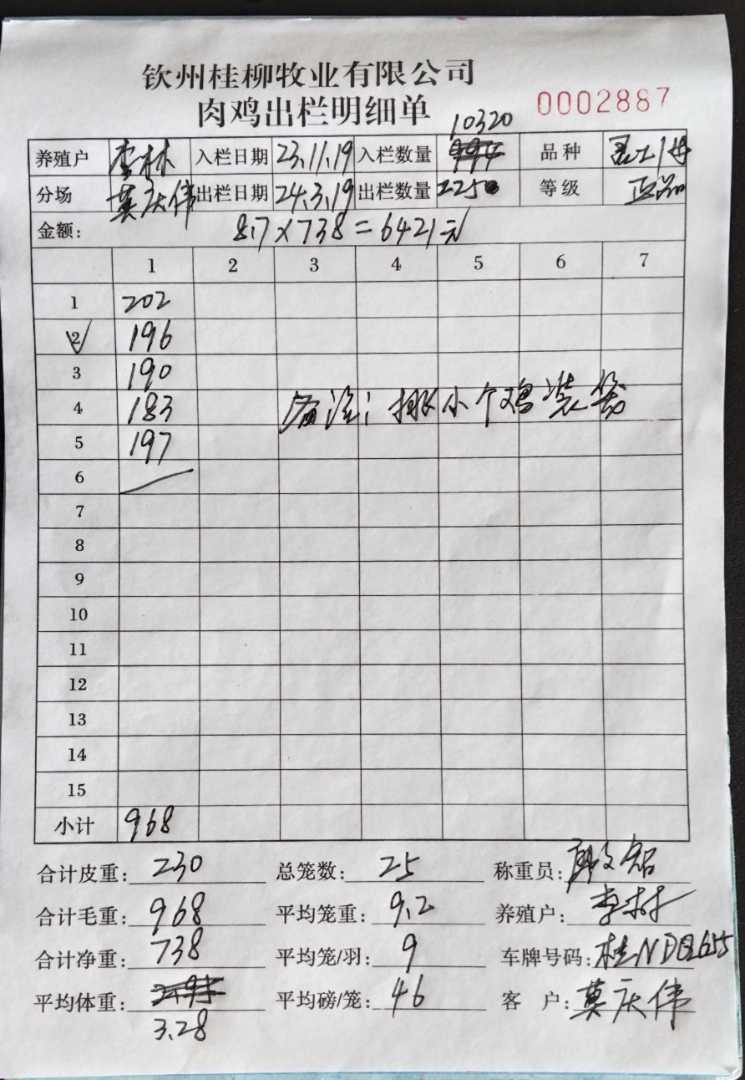 钦州桂柳牧业有限公司
肉鸡出栏明细单 0002887
10320
养殖户 李林 入栏日期 23.11.19 入栏数量 品种
分场 莫庆伟 出栏日期 24.3.19 出栏数量 225 等级 正品
金额: 8.7×738=6421元
1 2 3 4 5 6 7
1 202
2 196
3 190
4 183 备注: 排小个鸡装袋
5 197
6
7
8
9
10
11
12
13
14
15
小计 968
合计皮重: 230 总笼数: 25 称重员:
合计毛重: 968 平均笼重: 9.2 养殖户: 李林
合计净重: 738 平均笼/羽: 9 车牌号码: 桂ND
平均体重: 平均磅/笼: 46 客户: 莫庆伟
3.28